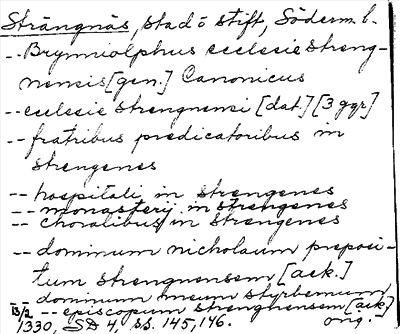 Strängnäs, stad o stift, Söderm l.
-- Brynniolphus ecclesie streng-
nensis [gen.] Canonicus
-- ecclesie strengnensi [dat.] [3 ggr]
-- fratribus predicatoribus in
strengenes
-- hospitali in strengenes
-- monasterij in strengenes
-- choralibus in strengenes
-- dominum nicholaum preposi-
tum strengnensem [ack.]
-- dominum meum styrbernum
-- episcopum strengnensem [ack]
13/2 1330, SD 4, ss. 145, 146. orig.